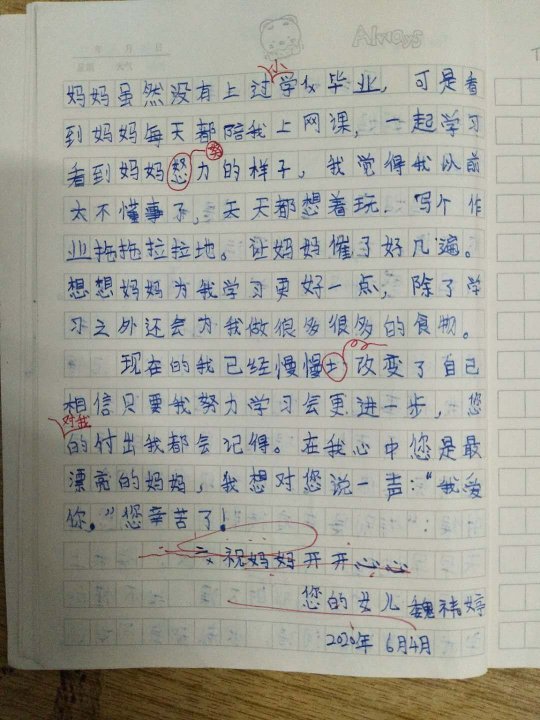 年 月 日
Always
小
妈妈虽然没有上过学仪毕业，可是看
到妈妈每天都陪我上网课，一起学习
努
看到妈妈怒力的样子，我觉得我以前
太不懂事了，天天都想着玩．写个作
业拖拖拉拉地。让妈妈催了好几遍。
想想妈妈为我学习更好一点，除了学
习之外还会为我做很多很多的食物。
现在的我已经慢慢土改变了自己
相信只要我努力学习会更进一步，您
对我
的付出我都会记得。在我心中您是最
漂亮的妈妈，我想对您说一声：“我爱
你．”您辛苦了！
祝妈妈开开心心
您的女儿魏祎婷
2020年 6月4月